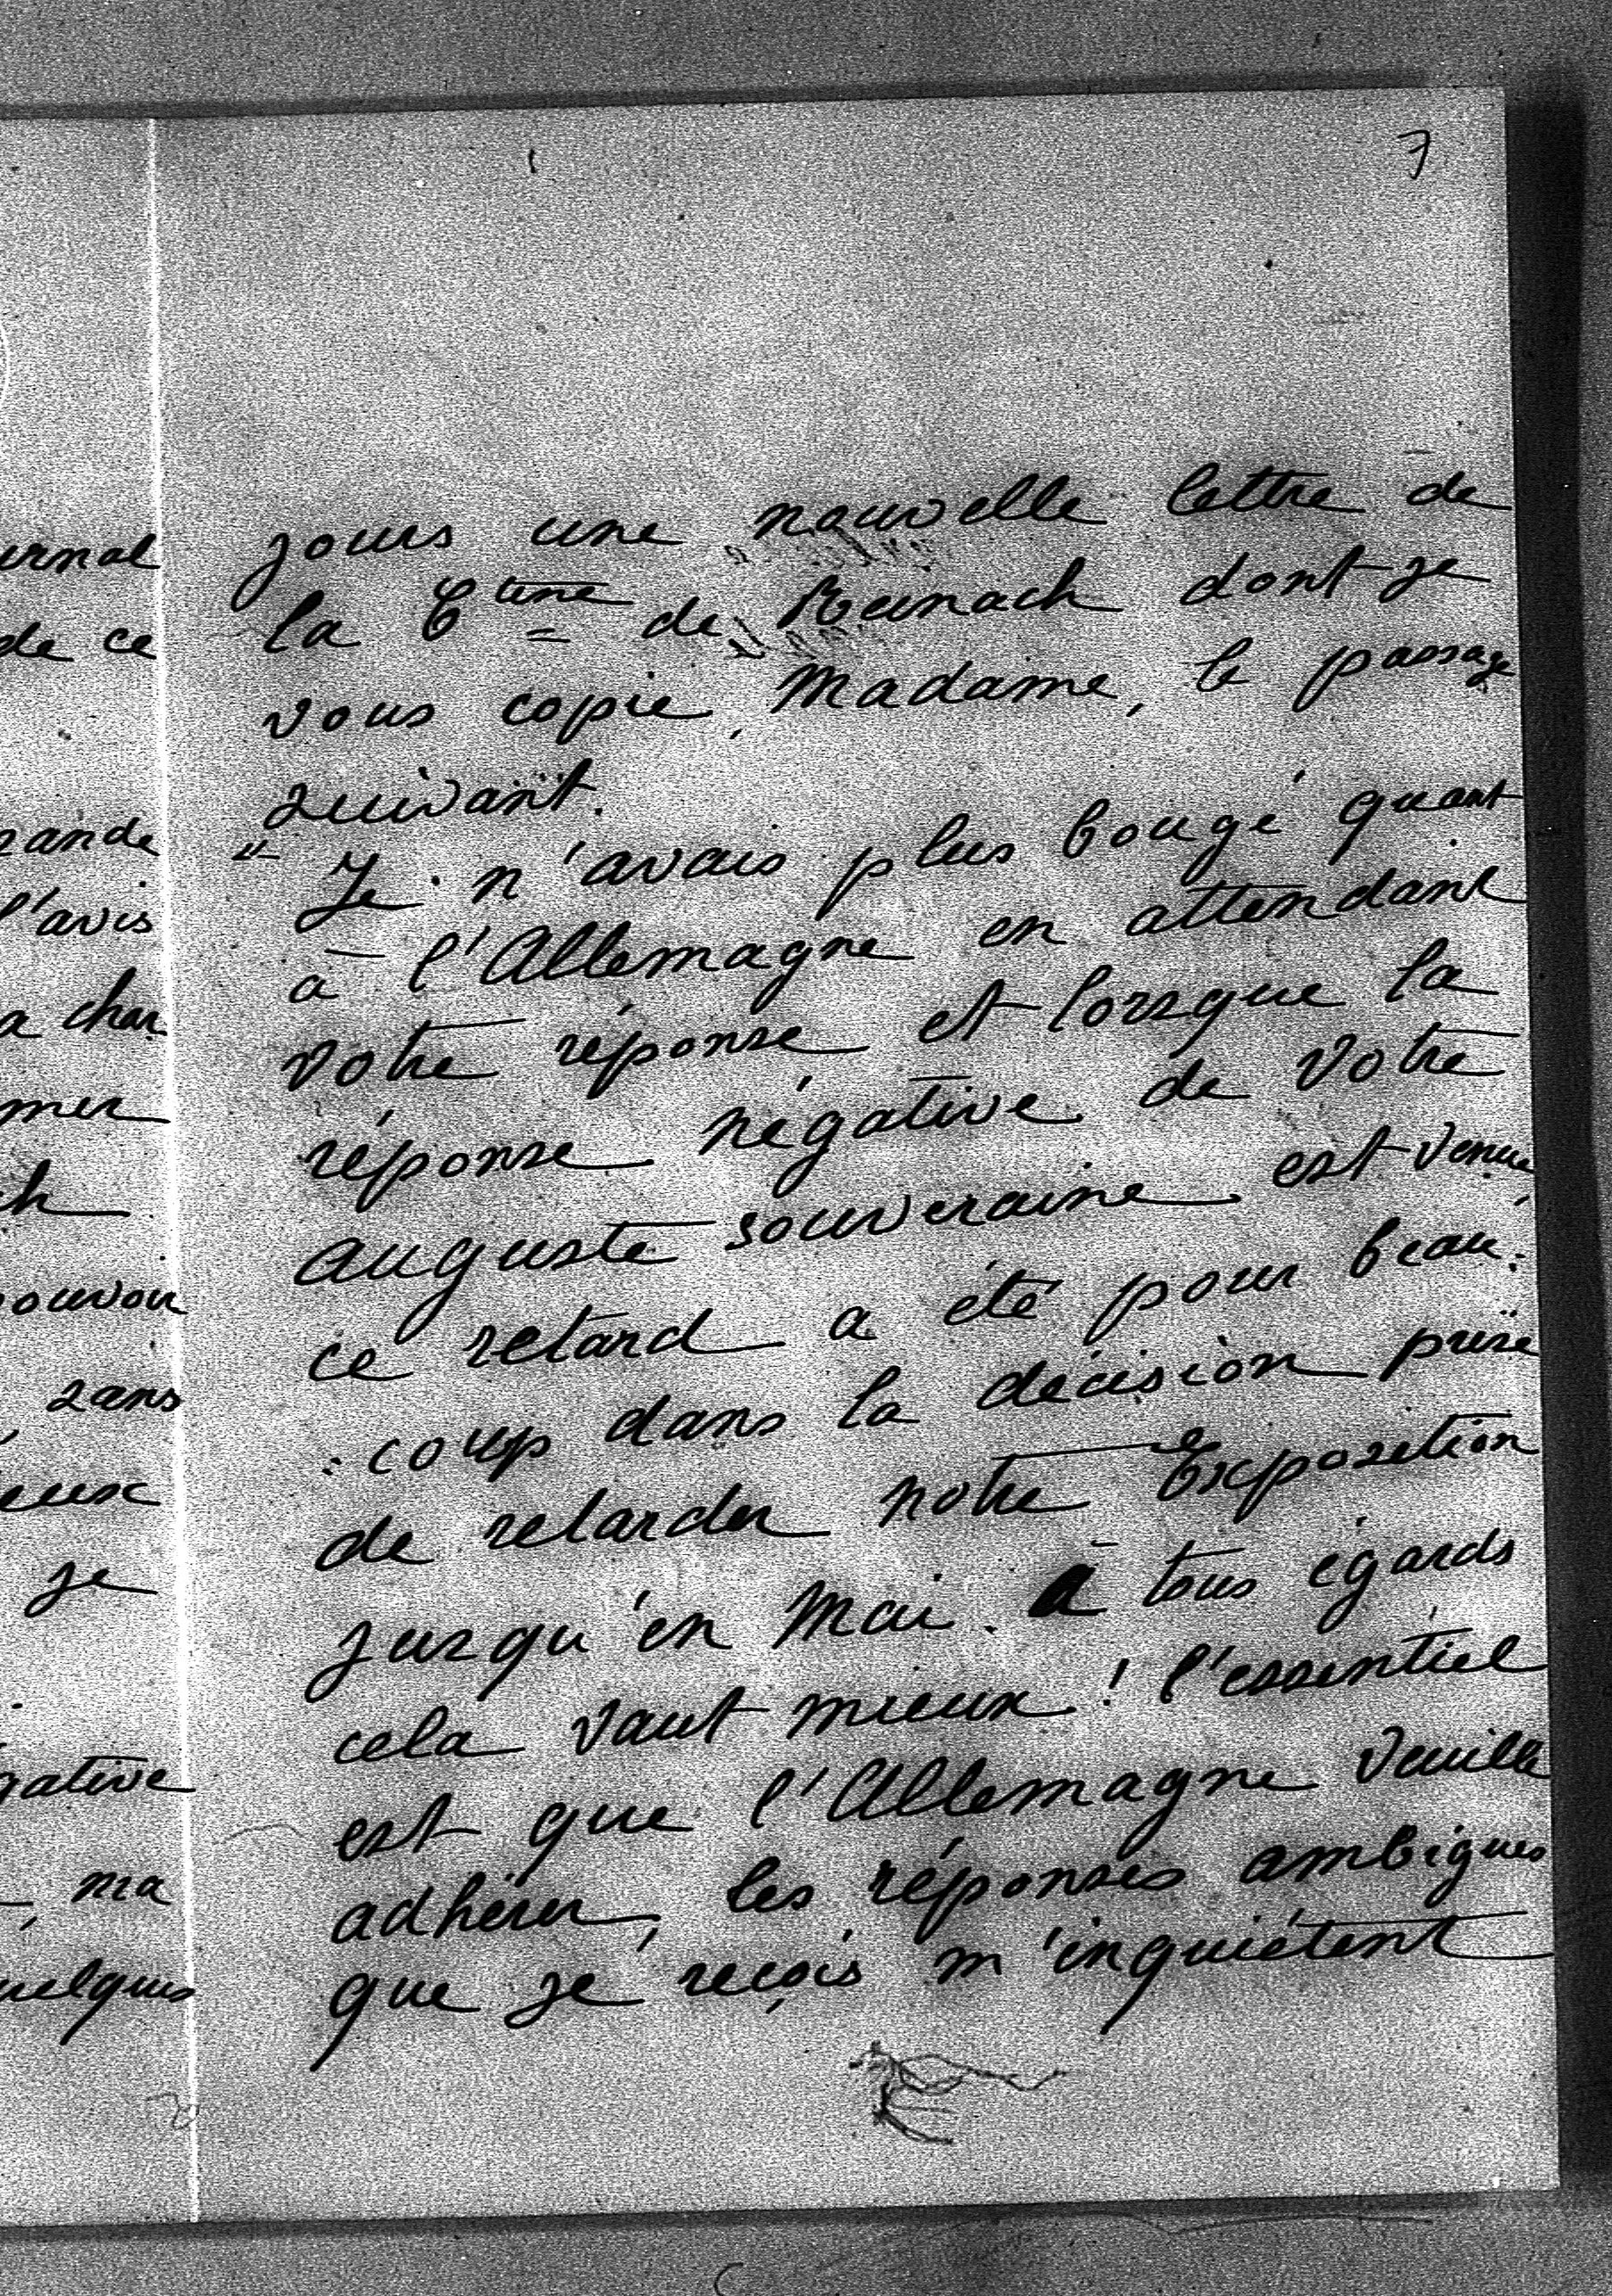 urnal
de ce
rande
l'avis
a char
mer
ch
pouvoir
sans
eux
je
gative
, ma
uelques
7
jours une nouvelle lettre de
la Ctsse de Reinach dont je
vous copie, Madame, le passage
suivant.
" Je n'avais plus bougé quant
à l'Allemagne en attendant
votre réponse et lorsque la
réponse négative de votre
auguste souveraine est venue,
ce retard a été pour beau:
:coup dans la décision prise
de retarder notre Exposition
jusqu'en Mai. à tous égards
cela vaut mieux! l'essentiel
est que l'Allemagne veuille
adhérer, les réponses ambigues
que je reçois m'inquiétent